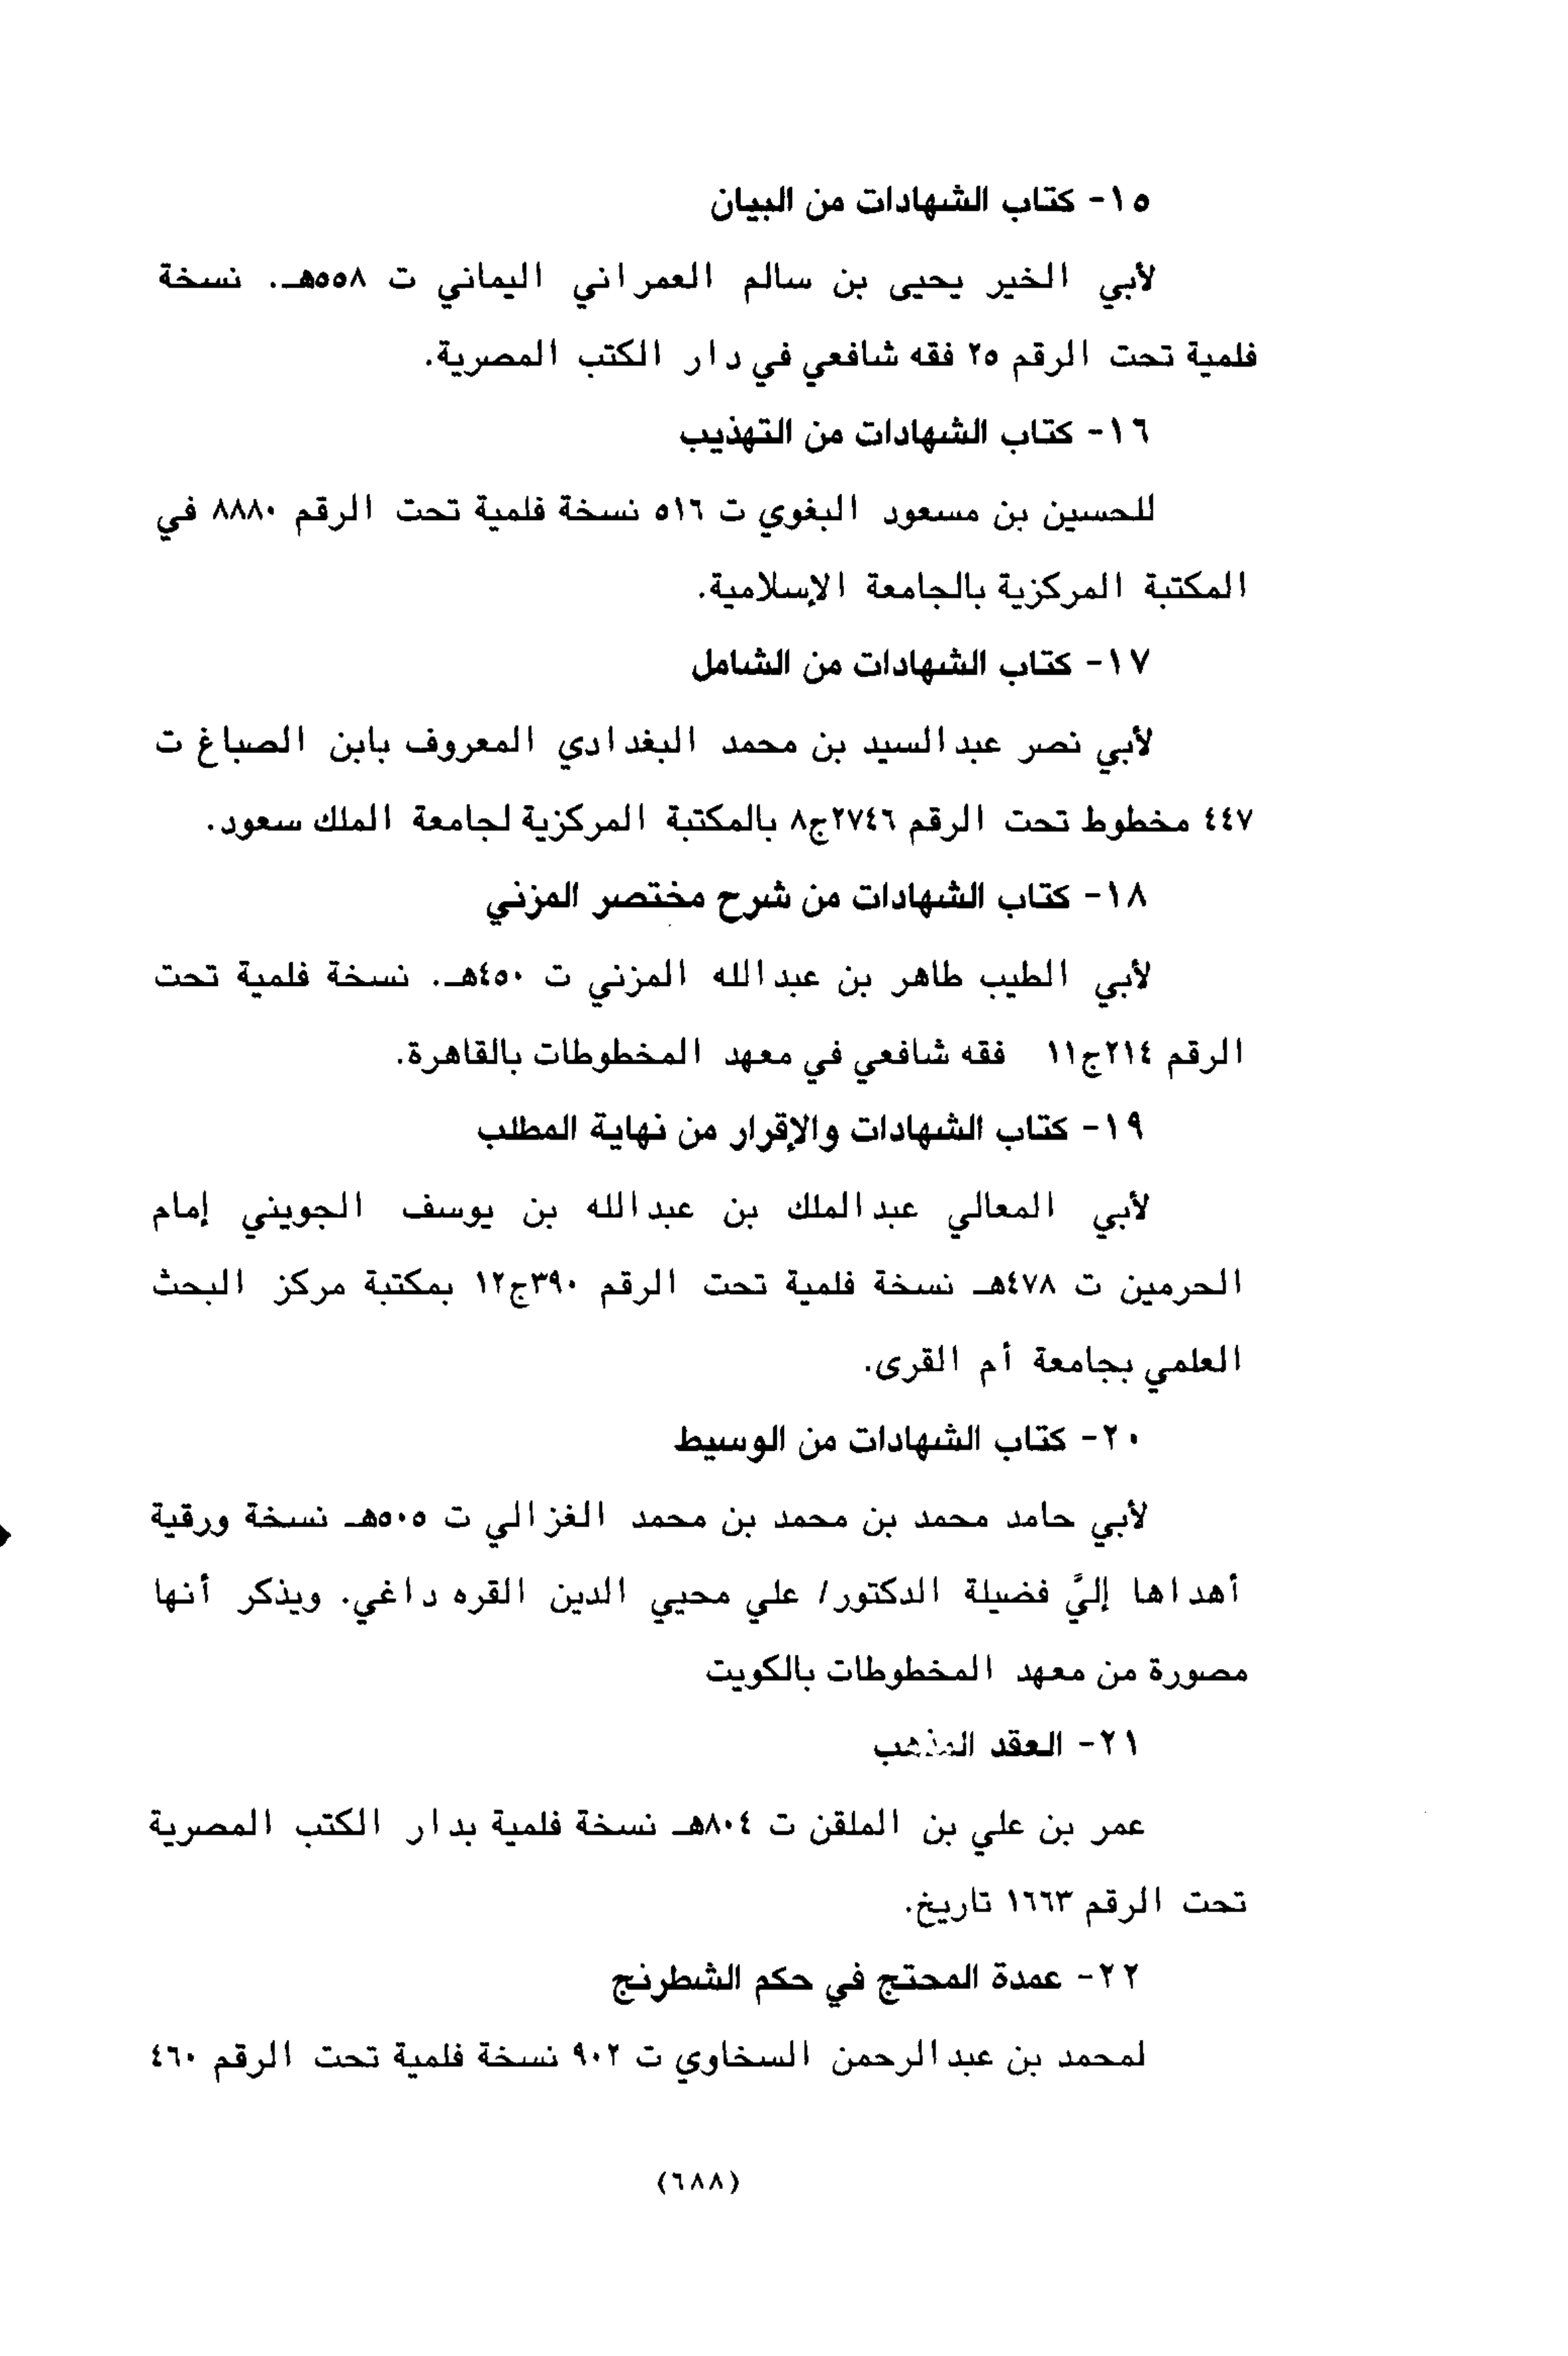 ١٥- كتاب الشهادات من البيان
لأبي الخير يحيى بن سالم العمراني اليماني ت ٥٥٨هـ. نسخة
فلمية تحت الرقم ٢٥ فقه شافعي في دار الكتب المصرية.
١٦- كتاب الشهادات من التهذيب
للحسين بن مسعود البغوي ت ٥١٦ نسخة فلمية تحت الرقم ٨٨٨٠ في
المكتبة المركزية بالجامعة الإسلامية.
١٧- كتاب الشهادات من الشامل
لأبي نصر عبدالسيد بن محمد البغدادي المعروف بابن الصباغ ت
٤٤٧ مخطوط تحت الرقم ٢٧٤٦ج٨ بالمكتبة المركزية لجامعة الملك سعود.
١٨- كتاب الشهادات من شرح مختصر المزني
لأبي الطيب طاهر بن عبدالله المزني ت ٤٥٠هـ. نسخة فلمية تحت
الرقم ٢١٤ج١١ فقه شافعي في معهد المخطوطات بالقاهرة.
١٩- كتاب الشهادات والإقرار من نهاية المطلب
لأبي المعالي عبدالملك بن عبدالله بن يوسف الجويني إمام
الحرمين ت ٤٧٨هـ نسخة فلمية تحت الرقم ٣٩٠ج١٢ بمكتبة مركز البحث
العلمي بجامعة أم القرى.
٢٠- كتاب الشهادات من الوسيط
لأبي حامد محمد بن محمد بن محمد الغزالي ت ٥٠٥هـ نسخة ورقية
أهداها إليَّ فضيلة الدكتور/ علي محيي الدين القره داغي. ويذكر أنها
مصورة من معهد المخطوطات بالكويت
٢١- العقد المذهب
عمر بن علي بن الملقن ت ٨٠٤هـ نسخة فلمية بدار الكتب المصرية
تحت الرقم ١٦٦٣ تاريخ.
٢٢- عمدة المحتج في حكم الشطرنج
لمحمد بن عبدالرحمن السخاوي ت ٩٠٢ نسخة فلمية تحت الرقم ٤٦٠
(٦٨٨)